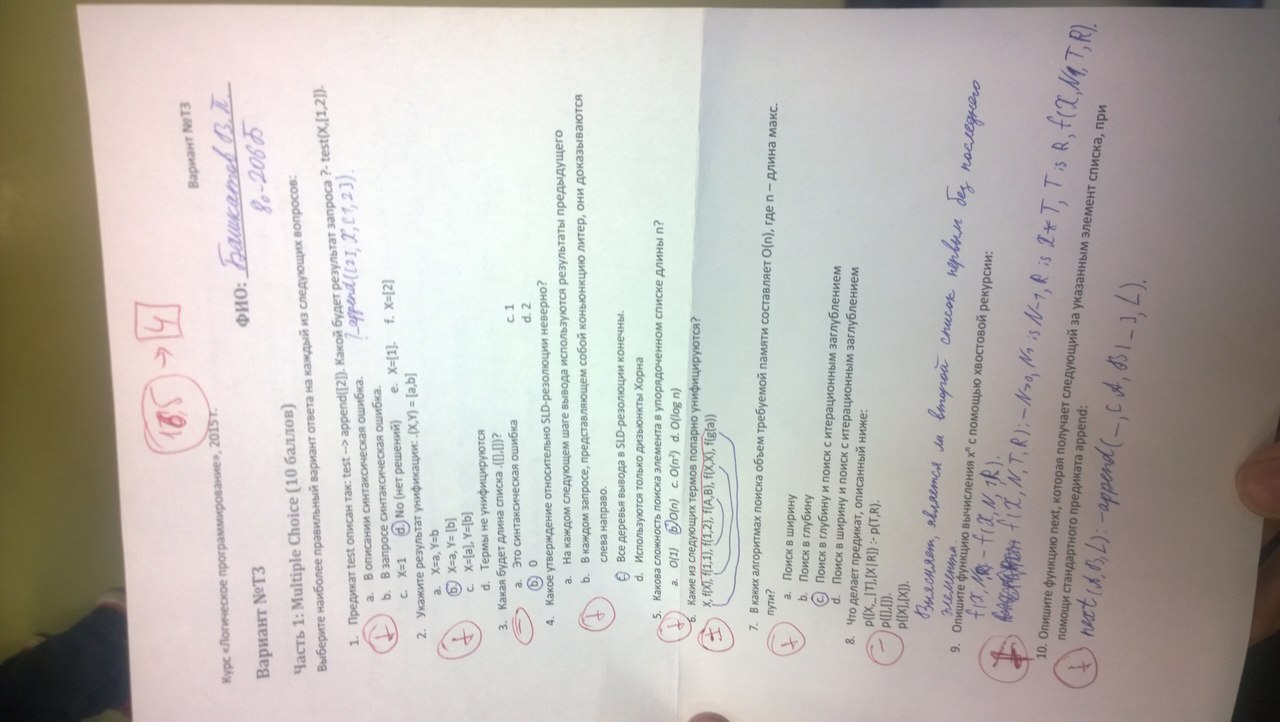 16,5 → 4
Вариант №Т3
Курс «Логическое программирование», 2015 г.
ФИО: Башкатов В.П.
Вариант №Т3
80-206Б
Часть 1: Multiple Choice (10 баллов)
Выберите наиболее правильный вариант ответа на каждый из следующих вопросов:
1. Предикат test описан так: test --> append([2]). Какой будет результат запроса ?- test(X,[1,2]).
a. В описании синтаксическая ошибка.
?-append([2],X,[1,2]).
b. В запросе синтаксическая ошибка.
c. X=1 d. No (нет решений) e. X=[1]. f. X=[2]
2. Укажите результат унификации: .(X,Y) = [a,b]
a. X=a, Y=b
b. X=a, Y= [b]
c. X=[a], Y=[b]
d. Термы не унифицируются
3. Какая будет длина списка .([],[])?
a. Это синтаксическая ошибка c. 1
b. 0 d. 2
4. Какое утверждение относительно SLD-резолюции неверно?
a. На каждом следующем шаге вывода используются результаты предыдущего
b. В каждом запросе, представляющем собой коньюнкцию литер, они доказываются
слева направо.
c. Все деревья вывода в SLD-резолюции конечны.
d. Используются только дизьюнкты Хорна
5. Какова сложность поиска элемента в упорядоченном списке длины n?
a. O(1) b. O(n) c. O(n²) d. O(log n)
6. Какие из следующих термов попарно унифицируются?
X, f(X), f(1,1), f(1,2), f(A,B), f(X,X), f(g(a))
7. В каких алгоритмах поиска объем требуемой памяти составляет O(n), где n – длина макс.
пути?
a. Поиск в ширину
b. Поиск в глубину
c. Поиск в глубину и поиск с итерационным заглублением
d. Поиск в ширину и поиск с итерационным заглублением
8. Что делает предикат, описанный ниже:
p([X,_|T],[X|R]) :- p(T,R).
p([],[]).
p([X],[X]).
Выясняет, является ли второй список первым без последнего
элемента.
9. Опишите функцию вычисления xⁿ с помощью хвостовой рекурсии:
f(X,N,R) :- f(X,N,1,R).
f(X,N,T,R):-N>0, N1 is N-1, R is X*T, T is R, f(X,N1,T,R).
10. Опишите функцию next, которая получает следующий за указанным элемент списка, при
помощи стандартного предиката append:
next(A,B,L):-append(_,[A,B|_],L).